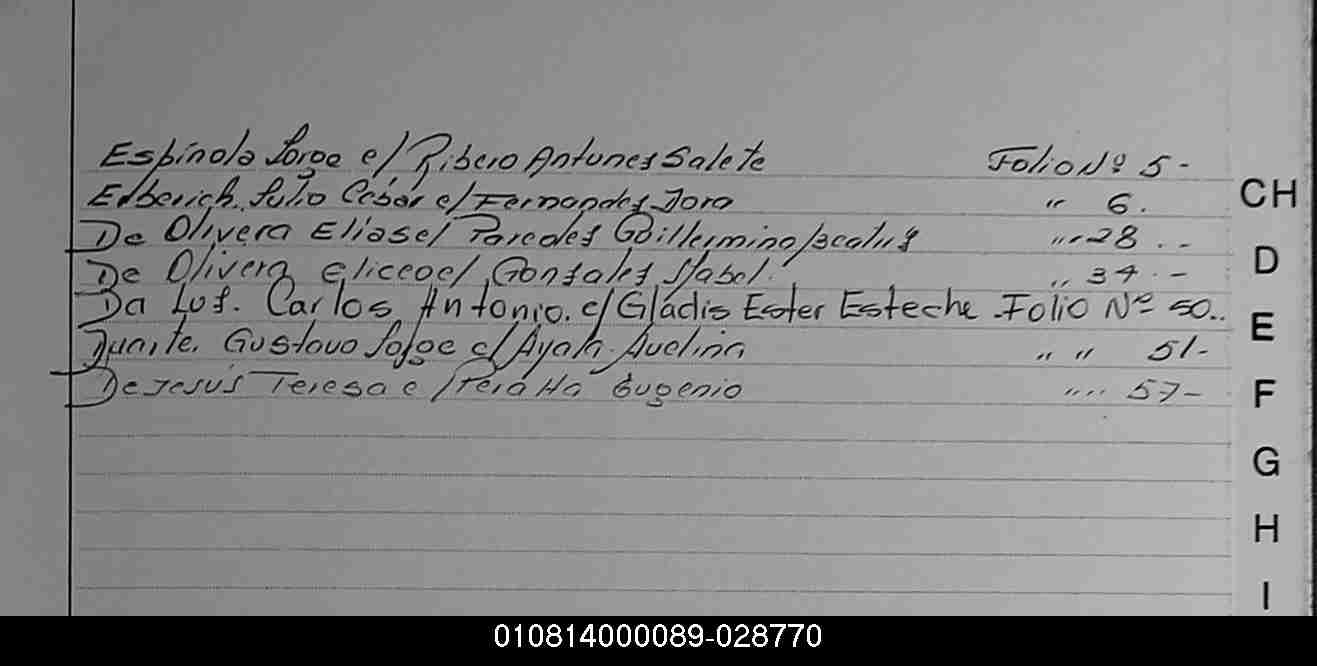 Espínola Jorge c/ Ribero Antunes Salete Folio Nº 5-
Elberich. Julio César c/ Fernandes Dora " 6.
De Olivera Elias c/ Paredes Guillermina " 28 . -
De Olivera Eliceo c/ Gonsales Isabel. " 34 . -
Da Lus. Carlos Antonio. c/ Gládis Ester Esteche Folio Nº 50..
Duarte. Gustavo Jorge c/ Ayala Avelina " " 51-
De Jesús Teresa c/ Peralta Eugenio " " 57-
CH
D
E
F
G
H
I
010814000089-028770